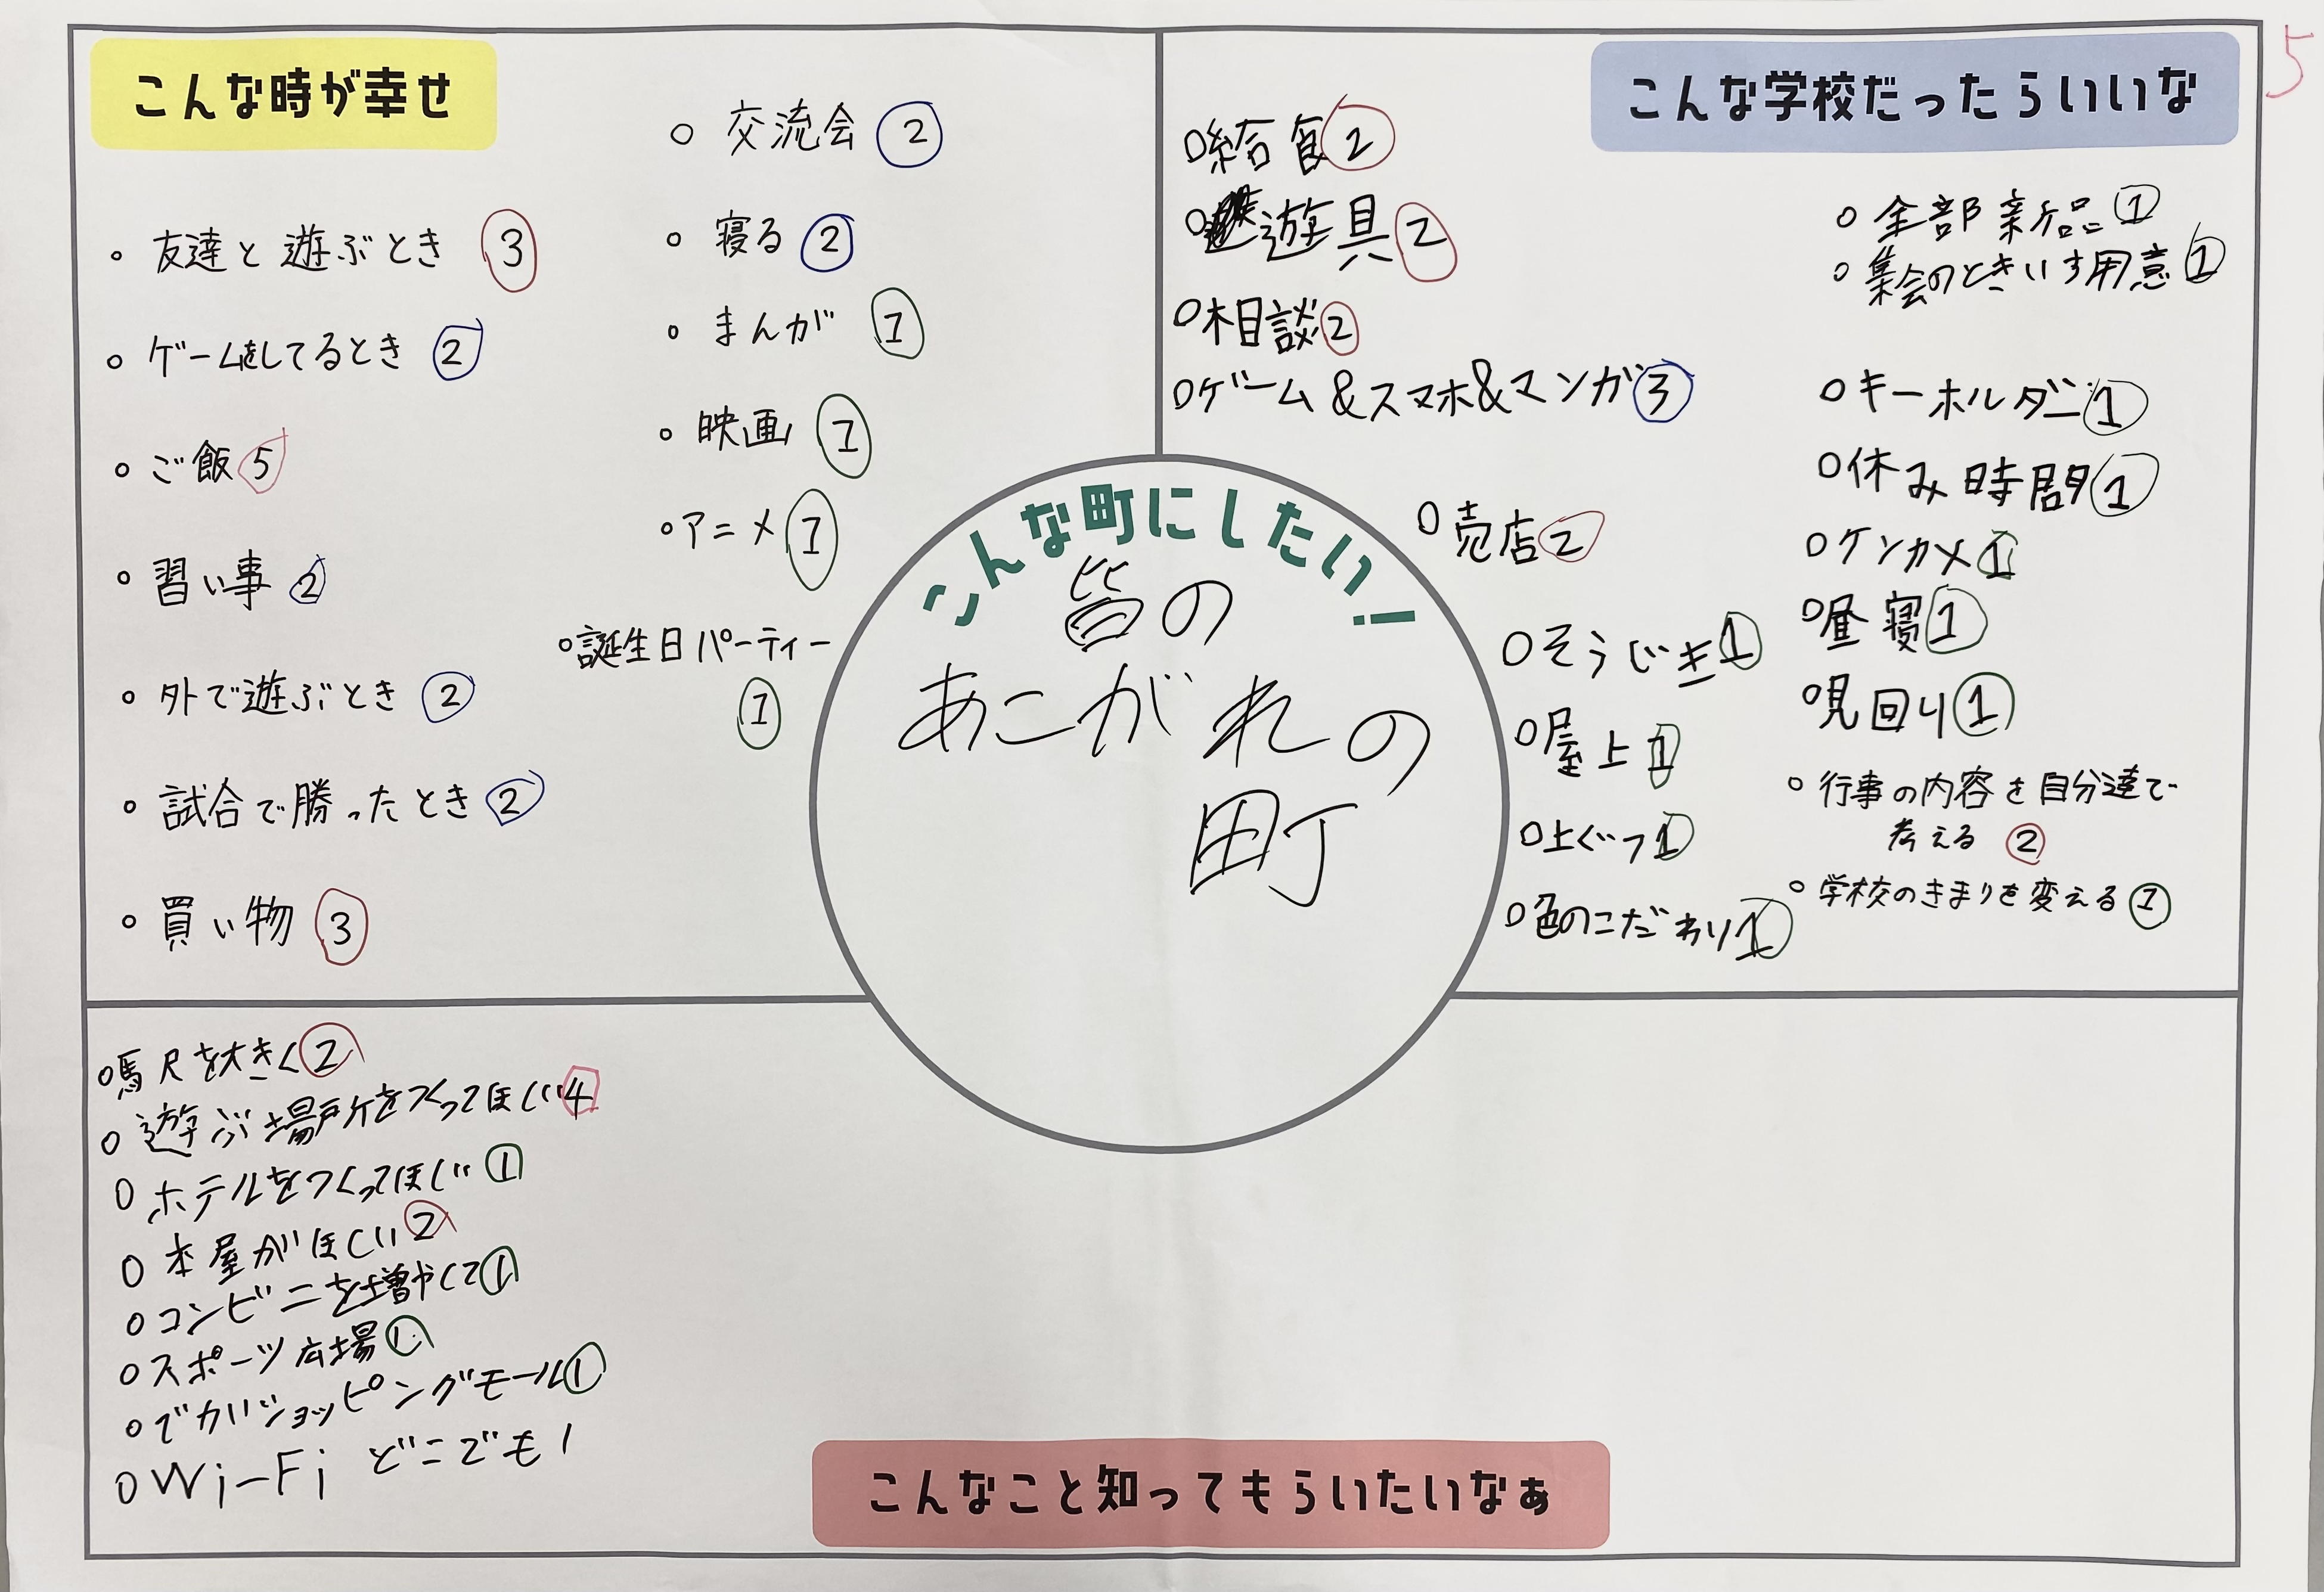 5
こんな時が幸せ
。友達と遊ぶとき ③
。ゲームをしてるとき ②
。ご飯 ⑤
。習い事 ②
。外で遊ぶとき ②
。試合で勝ったとき ②
。買い物 ③
。交流会 ②
。寝る ②
。まんが ①
。映画 ①
。アニメ ①
。誕生日パーティー
①
こんな学校だったらいいな
○給食 ②
○遊具 ②
○相談 ②
○ゲーム&スマホ&マンガ ③
○売店 ②
○そうじき ①
○屋上 ①
○上ぐつ ①
○色のこだわり ①
○全部新品 ①
○集会のときいす用意 ①
○キーホルダー ①
○休み時間 ①
○ケンカ ①
○昼寝 ①
○見回り ①
○行事の内容を自分達で
考える ②
○学校のきまりを変える ①
こんな町にしたい!
皆の
あこがれの
町
を大きく ②
○遊ぶ場所をつくってほしい 4
○ホテルをつくってほしい ①
○本屋がほしい ②
○コンビニを増やして ①
○スポーツ広場 ①
○でかいショッピングモール ①
○Wi-Fi どこでも 1
こんなこと知ってもらいたいなぁ